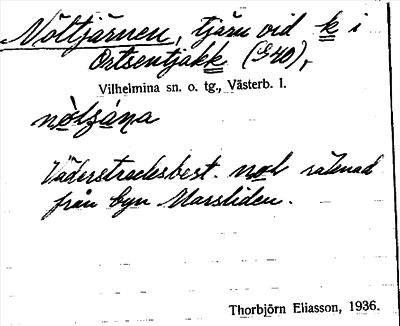 Nöltjärnen, tjärn vid k i
Ortsentjakk (G40),
Vilhelmina sn. o. tg., Västerb. l.
Väderstrecksbest. nol räknad
från byn Marsliden.
Thorbjörn Eliasson, 1936.